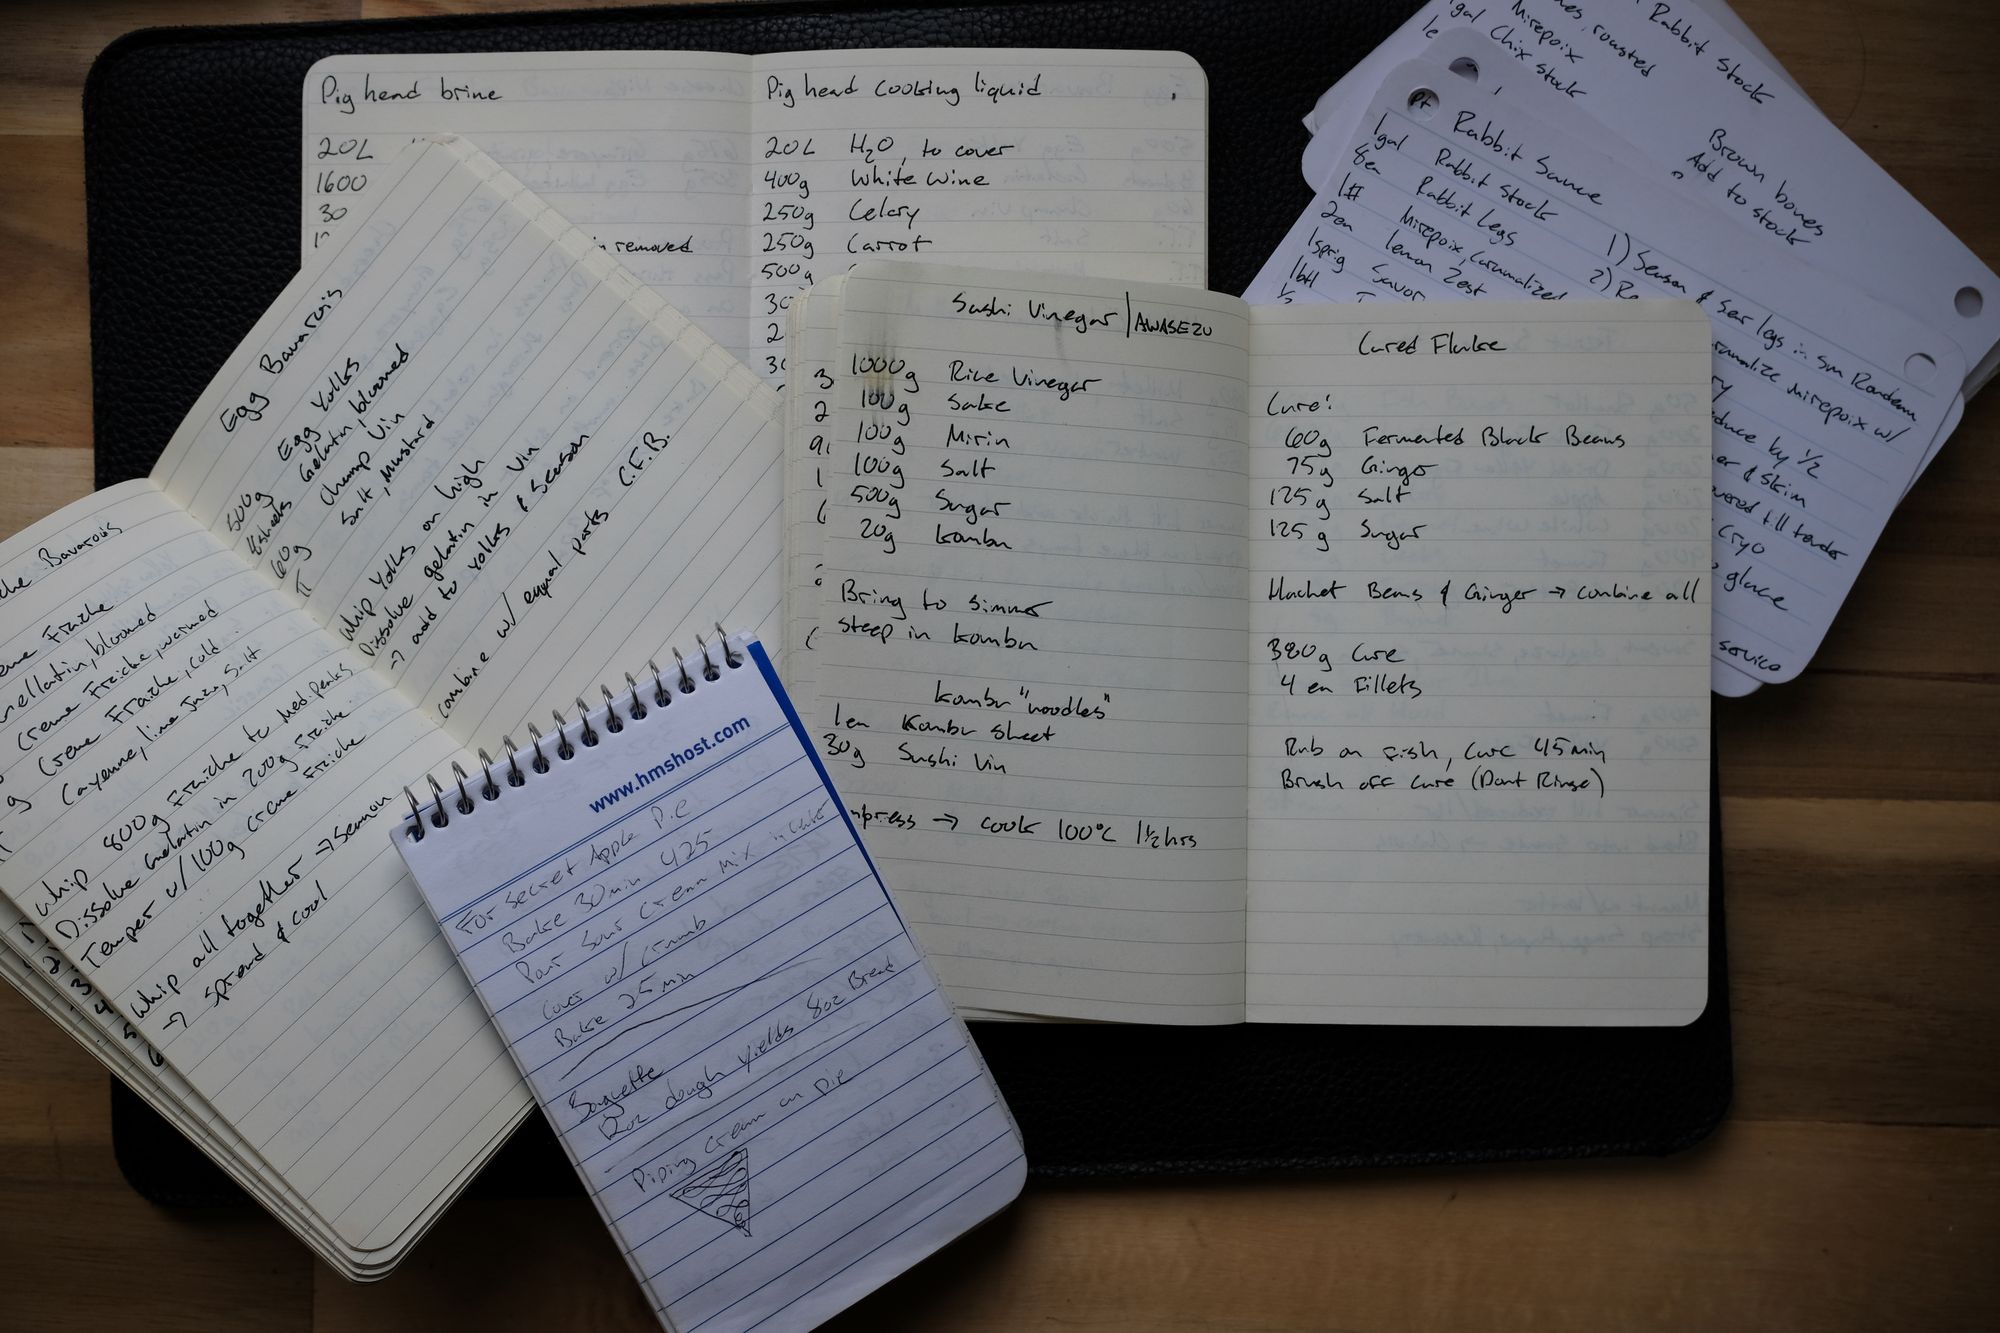 Pig head brine
20L
1600
30
in removed
Pig head cooking liquid
20L H2O, to cover
400g White Wine
250g Celery
250g Carrot
500g
30
2
30
Rabbit Stock
roasted
Mirepoix
1gal Chix Stock
Brown bones
Add to stock
Rabbit Sauce
1gal Rabbit Stock
8ea Rabbit Legs
1# Mirepoix, Caramalized
2ea lemon Zest
1sprig Savor
1btl
1/2
1) Season & Sear legs in sm Rondeau
2) Re
ramalize mirepoix w/
ry
duce by 1/2
er & skim
overed till tender
Cryo
glace
service
Egg Bavarois
500g Egg Yolks
8sheets Gelatin, bloomed
60g Champ Vin
TT Salt, Mustard
Whip Yolks on high
Dissolve gelatin in Vin
→ add to Yolks & Season
Combine w/ equal parts C.F.B.
che Bavarois
eme Fraiche
Creme Fraiche, warmed
g Creme Fraiche, Cold
Cayenne, lime Juice, Salt
Whip 800g Fraiche to Med. peaks
Dissolve Gelatin in 200g Fraiche.
Temper w/ 100g Creme Fraiche
Whip all together → Season
→ spread & cool
Sushi Vinegar | AWASEZU
1000g Rice Vinegar
100g Sake
100g Mirin
100g Salt
500g Sugar
20g kombu
Bring to simmer
steep in kombu
kombu "noodles"
1ea Kombu sheet
30g Sushi Vin
mpress → cook 100°C 1½hrs
Cured Fluke
Cure:
60g Fermented Black Beans
75g Ginger
125g Salt
125g Sugar
Hachet Beans & Ginger → combine all
380g Cure
4 ea Fillets
Rub on fish, Cure 45min
Brush off Cure (Dont Rinse)
www.hmshost.com
For Secret Apple Pie
Bake 30min 425
Pour Sour Cream mix in
Cover w/ crumb
Bake 25min
Baguette
12oz dough yields 8oz Bread
Piping Cream on pie